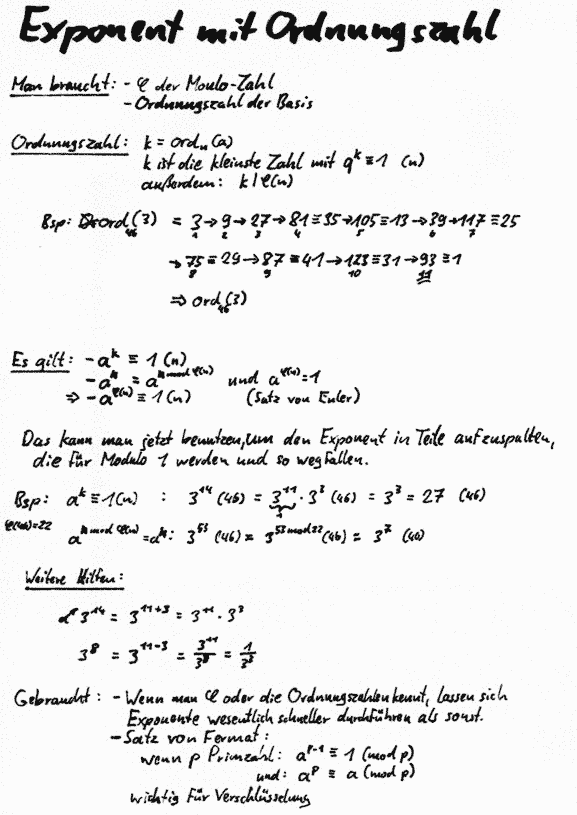 Exponent mit Ordnungszahl
Man braucht: - φ der Moulo-Zahl
- Ordnungszahl der Basis
Ordnungszahl: k = ord_n(a)
k ist die kleinste Zahl mit q^k ≡ 1 (n)
außerdem: k | φ(n)
Bsp: ord_46(3) = 3 → 9 → 27 → 81 ≡ 35 → 105 ≡ 13 → 39 → 117 ≡ 25
1 2 3 4 5 6 7
→ 75 ≡ 29 → 87 ≡ 41 → 123 ≡ 31 → 93 ≡ 1
8 9 10 11
⇒ ord_46(3)
Es gilt: - a^k ≡ 1 (n)
- a^k = a^{k mod φ(n)} und a^{φ(n)} = 1
⇒ - a^{φ(n)} ≡ 1 (n) (Satz von Euler)
Das kann man jetzt benutzen, um den Exponent in Teile aufzuspalten,
die für Modulo 1 werden und so wegfallen.
Bsp: a^k ≡ 1 (n) : 3^14 (46) = 3^11 · 3^3 (46) = 3^3 = 27 (46)
1
φ(46)=22
a^{k mod φ(n)} = a^k : 3^53 (46) = 3^{53 mod 22} (46) = 3^7 (46)
Weitere Hilfen:
3^14 = 3^{11+3} = 3^11 · 3^3
3^8 = 3^{11-3} = 3^11/3^8 = 1/3^3
Gebraucht: - Wenn man φ oder die Ordnungszahlen kennt, lassen sich
Exponente wesentlich schneller durchführen als sonst.
- Satz von Fermat:
wenn p Primzahl: a^{p-1} ≡ 1 (mod p)
und: a^p ≡ a (mod p)
wichtig für Verschlüsselung